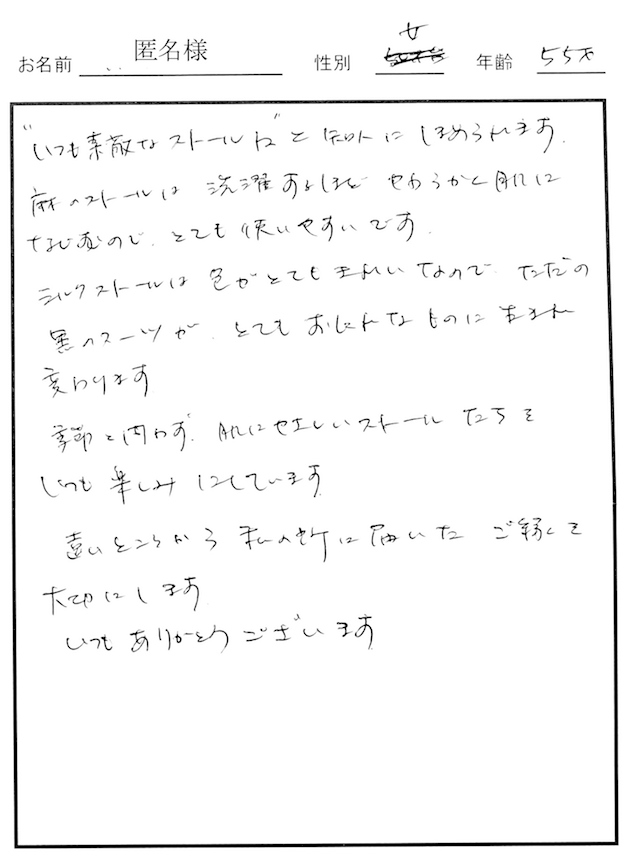 お名前 匿名様 性別 女 年齢 55才
"いつも素敵なストールね"と 知人に ほめられます。
麻のストールは 洗濯するほど やわらかく 肌に
なじむので、とても 使いやすいです。
シルクストールは 色がとても きれいなので、ただの
黒のスーツが、とても おしゃれな ものに 生まれ
変わります
季節を問わず、肌にやさしいストール たちを
いつも 楽しみ にしています
遠いところから 私の所に届いた ご縁を
大切にします
いつも ありがとう ございます